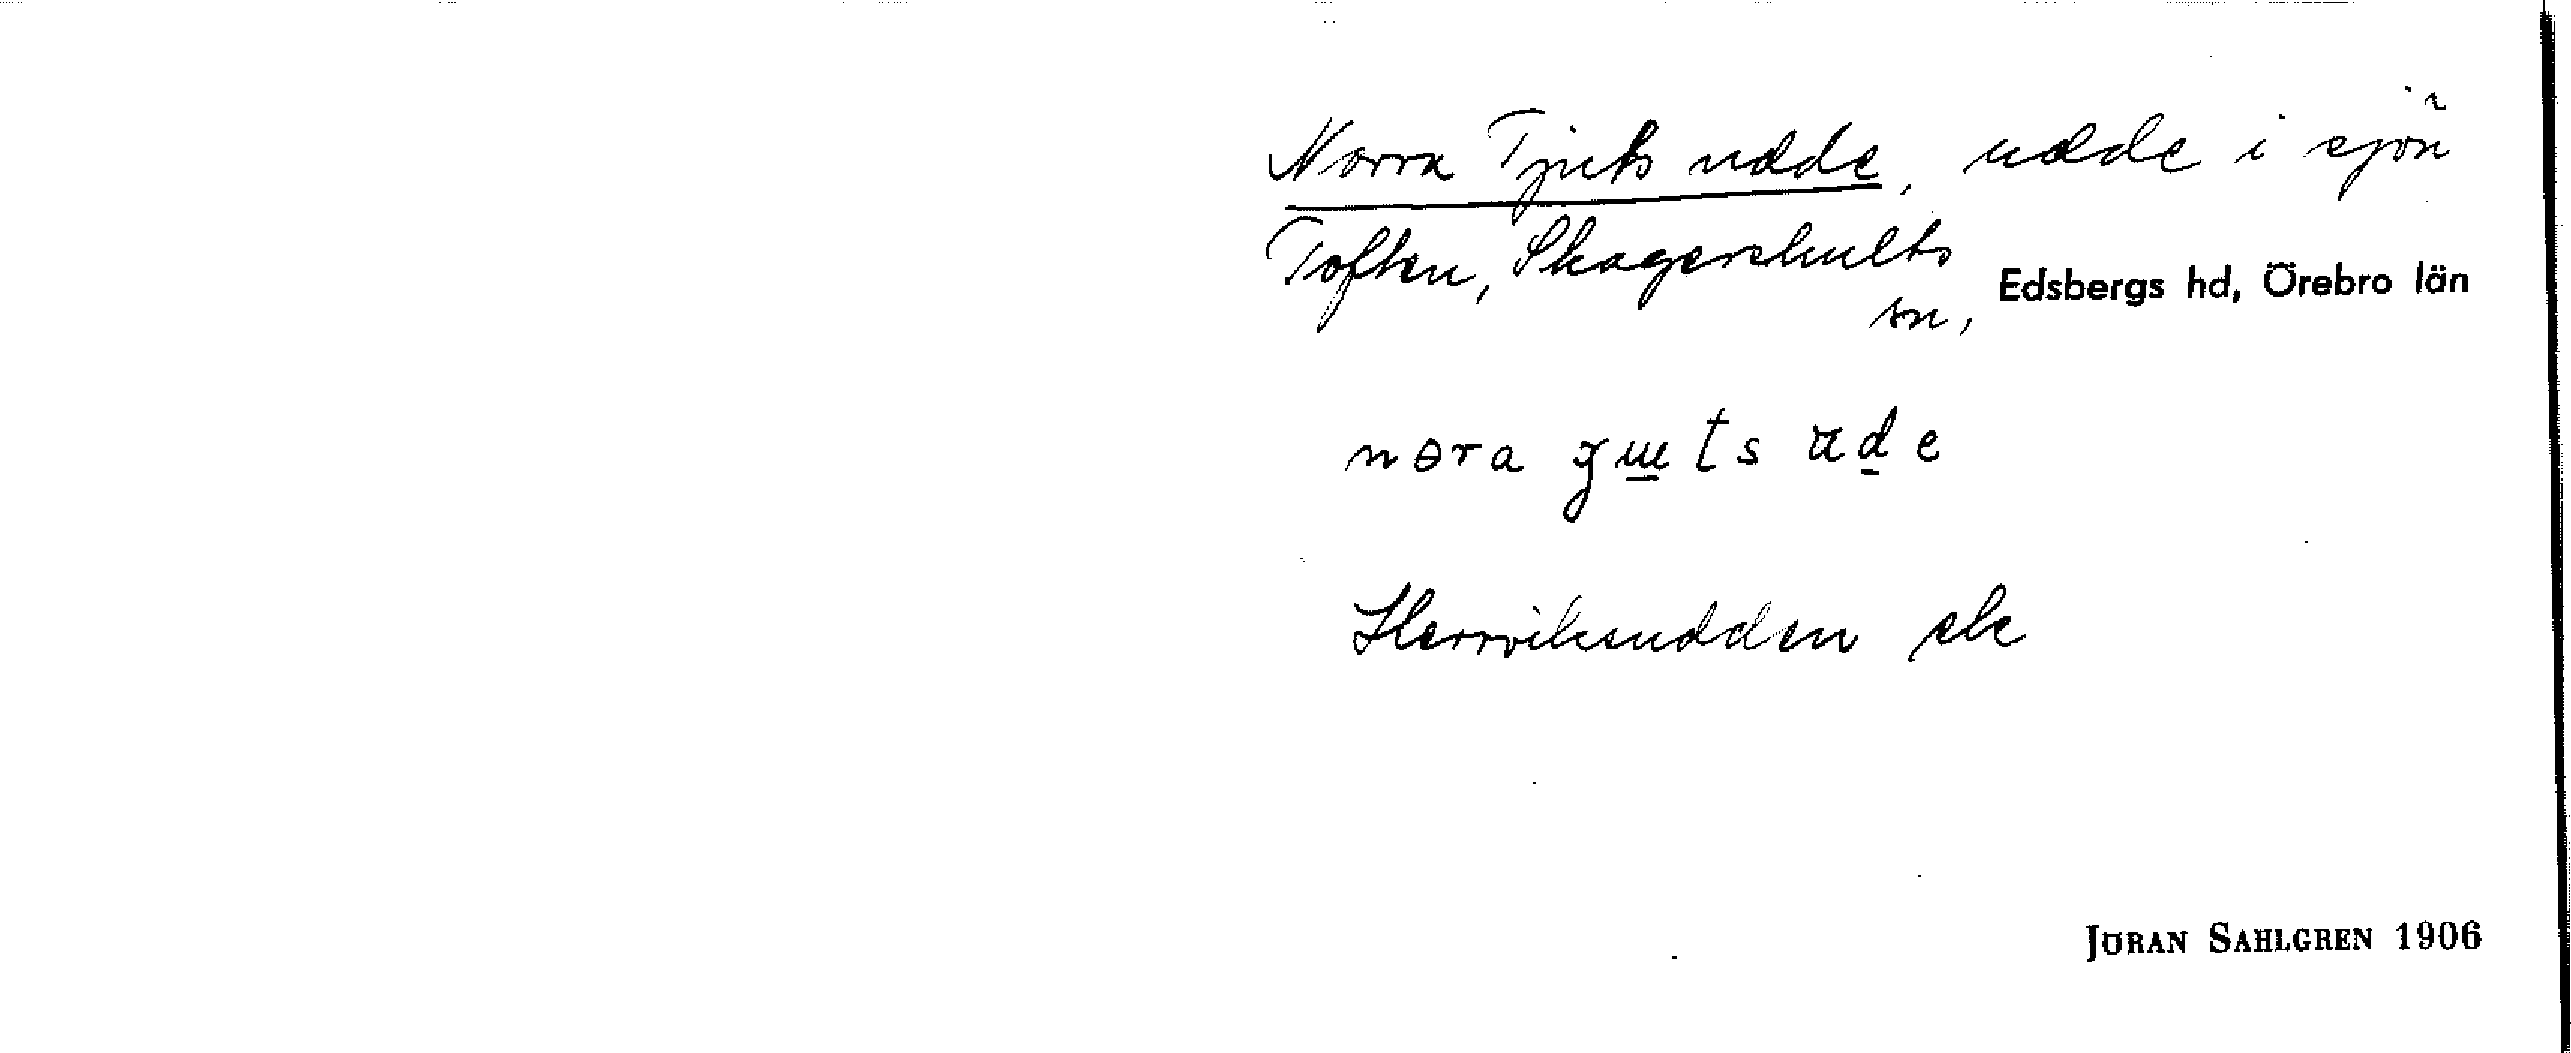 Norra Tjuts udde, udde i sjön
Toften, Skagershults
sn, Edsbergs hd, Örebro län
Herrviksudden ek
JÖRAN SAHLGREN 1906